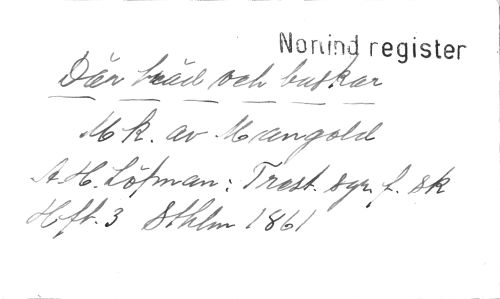 Nonind register
Där träd och buskar
Mk. av Mangold
A. H. Löfman: Trest. syr. f. sk
Hft. 3 Sthlm 1861